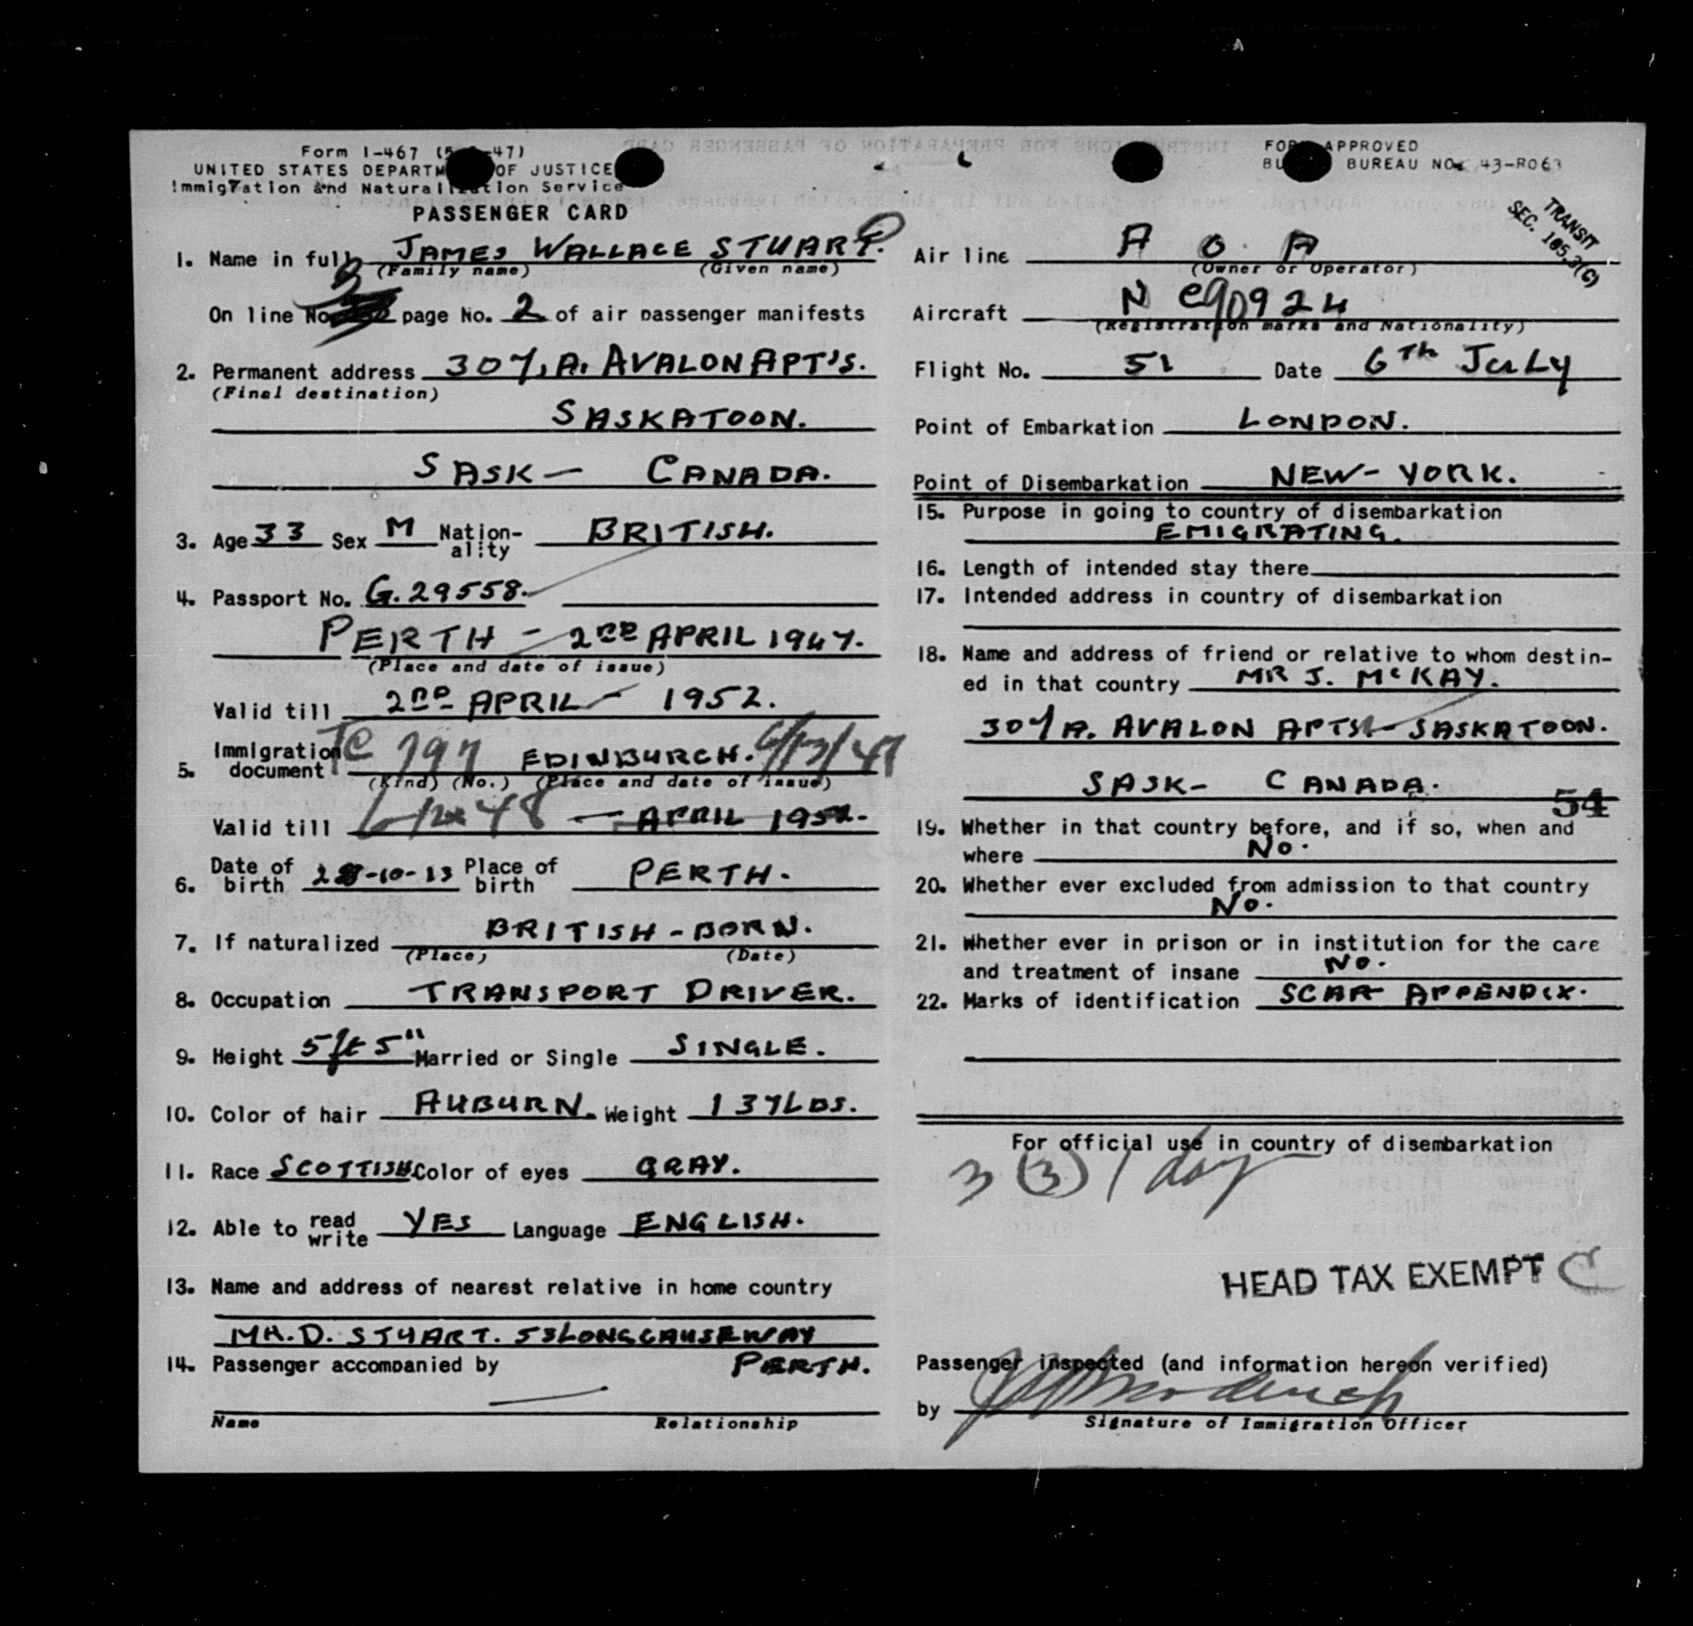 Form I-467 (5- -47)
UNITED STATES DEPARTM OF JUSTICE
Immigration and Naturalization Service
PASSENGER CARD
1. Name in full JAMES WALLACE STUART.
(Family name) (Given name)
On line No. 3 page No. 2 of air passenger manifests
2. Permanent address 307, A. AVALON APT'S.
(Final destination)
SASKATOON.
SASK — CANADA.
3. Age 33 Sex M Nation-ality BRITISH.
4. Passport No. G. 29558.
PERTH - 2ND APRIL 1947.
(Place and date of issue)
Valid till 2ND APRIL - 1952.
5. Immigration document TC 797 EDINBURGH. 6/13/47
(Kind) (No.) (Place and date of issue)
Valid till — APRIL 1952.
6. Date of birth 28-10-13 Place of birth PERTH.
7. If naturalized BRITISH - BORN.
(Place) (Date)
8. Occupation TRANSPORT DRIVER.
9. Height 5ft 5" Married or Single SINGLE.
10. Color of hair AUBURN. Weight 137LBS.
11. Race SCOTTISH Color of eyes GRAY.
12. Able to read write YES Language ENGLISH.
13. Name and address of nearest relative in home country
MR. D. STUART. 53 LONGCAUSEWAY
PERTH.
14. Passenger accompanied by
Name Relationship
FORM APPROVED
BU BUREAU NO. 43-R063
TRANSIT
SEC. 165.3(C)
Air line A O. A
(Owner or Operator)
Aircraft N C90924
(Registration marks and Nationality)
Flight No. 51 Date 6Th JuLy
Point of Embarkation LONDON.
Point of Disembarkation NEW-YORK.
15. Purpose in going to country of disembarkation
EMIGRATING.
16. Length of intended stay there
17. Intended address in country of disembarkation
18. Name and address of friend or relative to whom destin-
ed in that country MR J. McKAY.
307 A. AVALON APTS - SASKATOON.
SASK - CANADA.
54
19. Whether in that country before, and if so, when and
where No.
20. Whether ever excluded from admission to that country
No.
21. Whether ever in prison or in institution for the care
and treatment of insane No.
22. Marks of identification SCAR APPENDIX.
For official use in country of disembarkation
3 (3) 1 day
HEAD TAX EXEMPT
Passenger inspected (and information hereon verified)
by
Signature of Immigration Officer